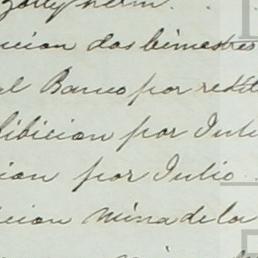 cucion dos bimestres
al Banco por redit
libicion por Juli
ion por Julio
icion mina de la